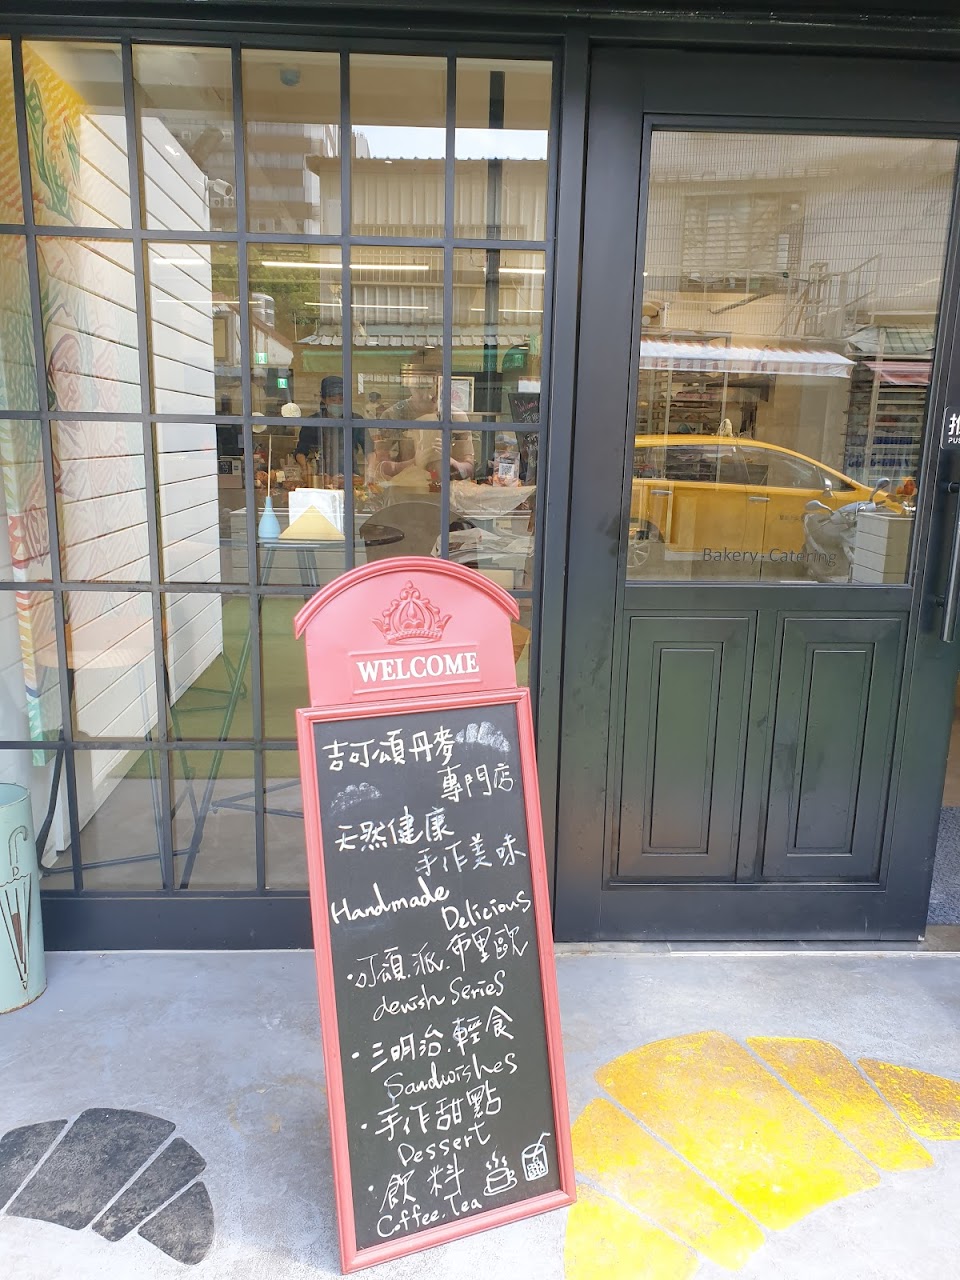 WELCOME
吉可頌丹麥
專門店
天然健康
手作美味
Handmade
Delicious
·可頌.派.布里歐
denish Series
·三明治.輕食
Sandwishes
·手作甜點
Dessert
·飲料
Coffee.Tea
Bakery · Catering